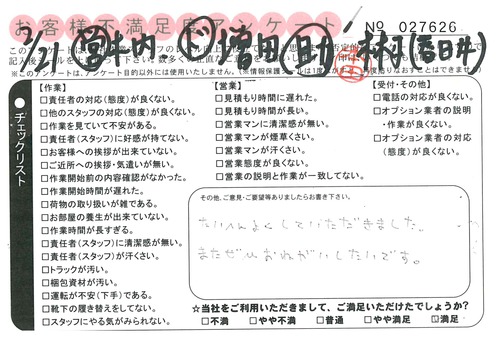 お客様不満足度アンケート
No 027626
2/21 営 木内 ド 増田(田) 木村(春日井)
※このアンケートは、アンケート目的以外には使用いたしません。
チェックリスト
【作業】
□責任者の対応(態度)が良くない。
□他のスタッフの対応(態度)が良くない。
□作業を見ていて不安がある。
□責任者(スタッフ)に好感が持てない。
□お客様への挨拶が出来ていない。
□ご近所への挨拶・気遣いが無い。
□作業開始前の内容確認がなかった。
□作業開始時間が遅れた。
□荷物の取り扱いが雑である。
□お部屋の養生が出来ていない。
□作業時間が長すぎる。
□責任者(スタッフ)に清潔感が無い。
□責任者(スタッフ)が汗くさい。
□トラックが汚い。
□梱包資材が汚い。
□運転が不安(下手)である。
□靴下の履き替えをしてない。
□スタッフにやる気がみられない。
【営業】
□見積もり時間に遅れた。
□見積もり時間が長い。
□営業マンに清潔感が無い。
□営業マンが煙草くさい。
□営業マンが汗くさい。
□営業態度が良くない。
□営業の説明と作業が一致してない。
【受付・その他】
□電話の対応が良くない。
□オプション業者の説明
・作業が良くない。
□オプション業者の対応
(態度)が良くない。
その他、ご意見・ご要望等ありましたらお書き下さい。
たいへんよくしていただきました。
またぜひおねがいしたいです。
☆当社をご利用いただきまして、ご満足いただけたでしょうか?
□不満 □やや不満 □普通 □やや満足 □満足